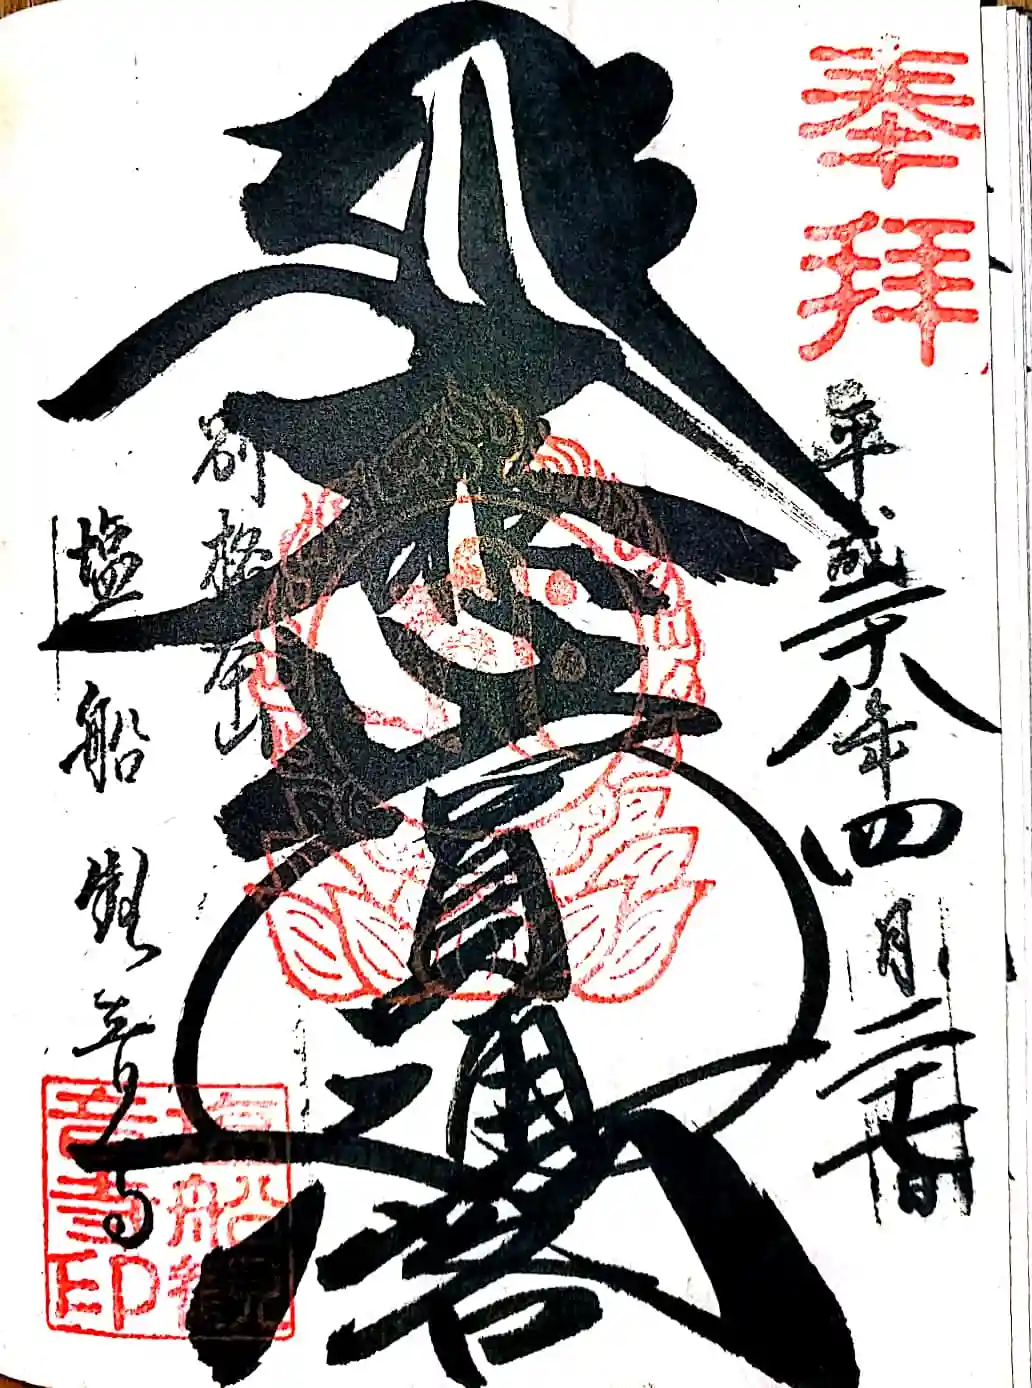 奉拝
平成二十八年四月二十
圓通閣
別格本山
塩船観音寺
塩船観
音寺印